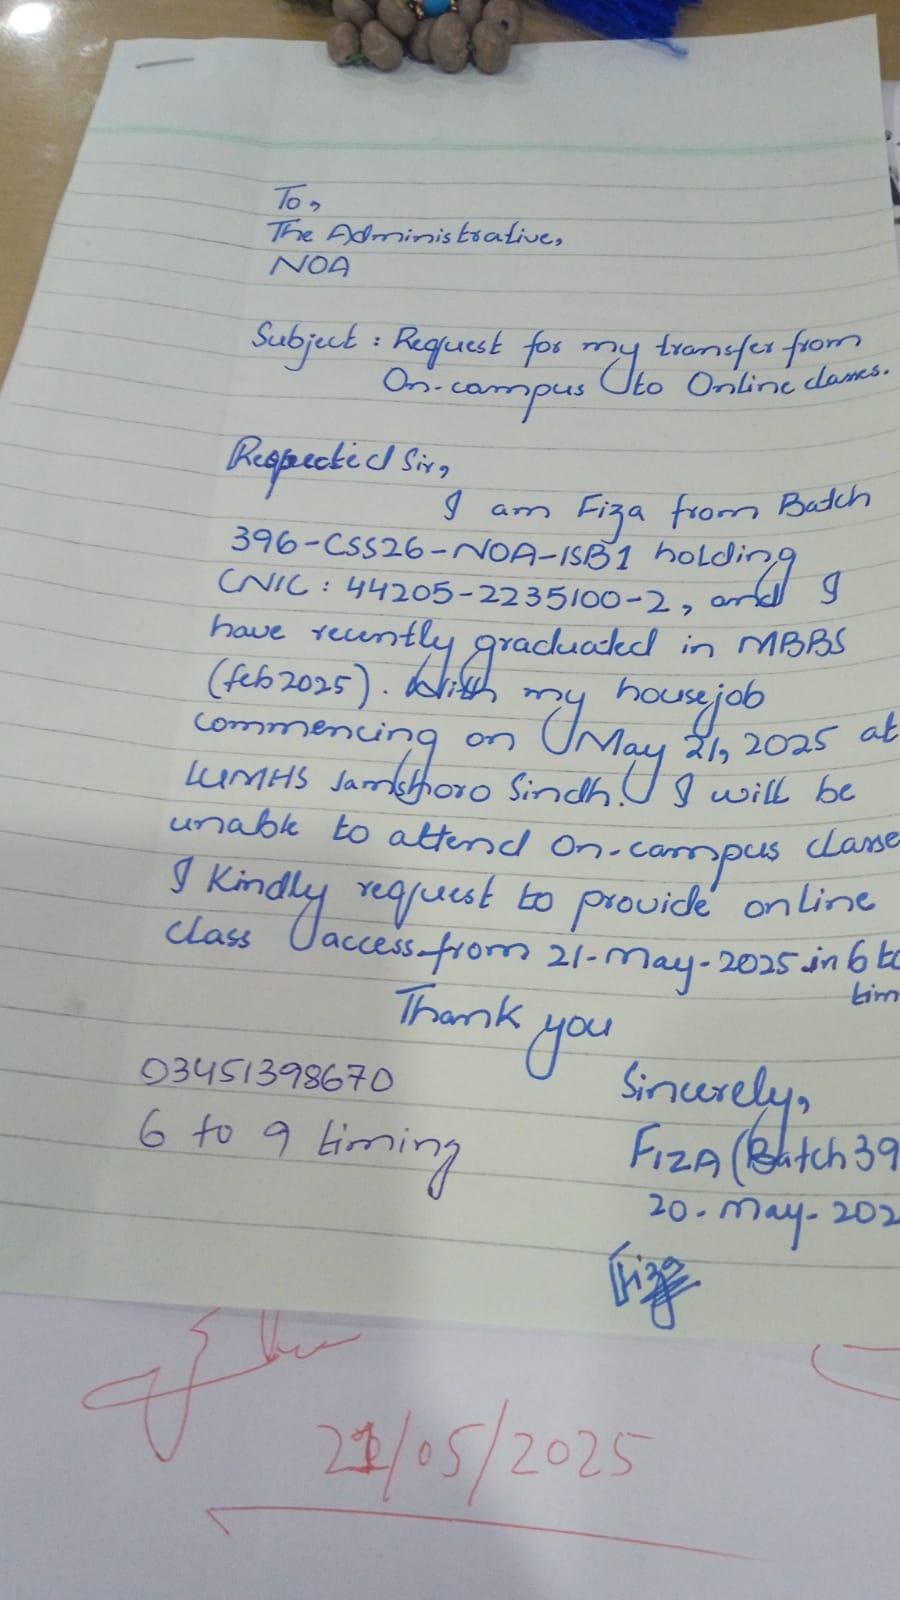 To,
The Administrative,
NOA
Subject : Request for my transfer from
On-campus to Online classes.
Respected Sir,
I am Fiza from Batch
396-CSS26-NOA-ISB1 holding
CNIC : 44205-2235100-2, and I
have recently graduated in MBBS
(feb 2025). With my housejob
commencing on May 21, 2025 at
LUMHS Jamshoro Sindh. I will be
unable to attend On-campus classe
I Kindly request to provide online
class access from 21-May-2025 in 6 to
tim
Thank you
03451398670
6 to 9 timing
Sincerely,
FIZA (Batch 39
20-May-202
Fiza
21/05/2025